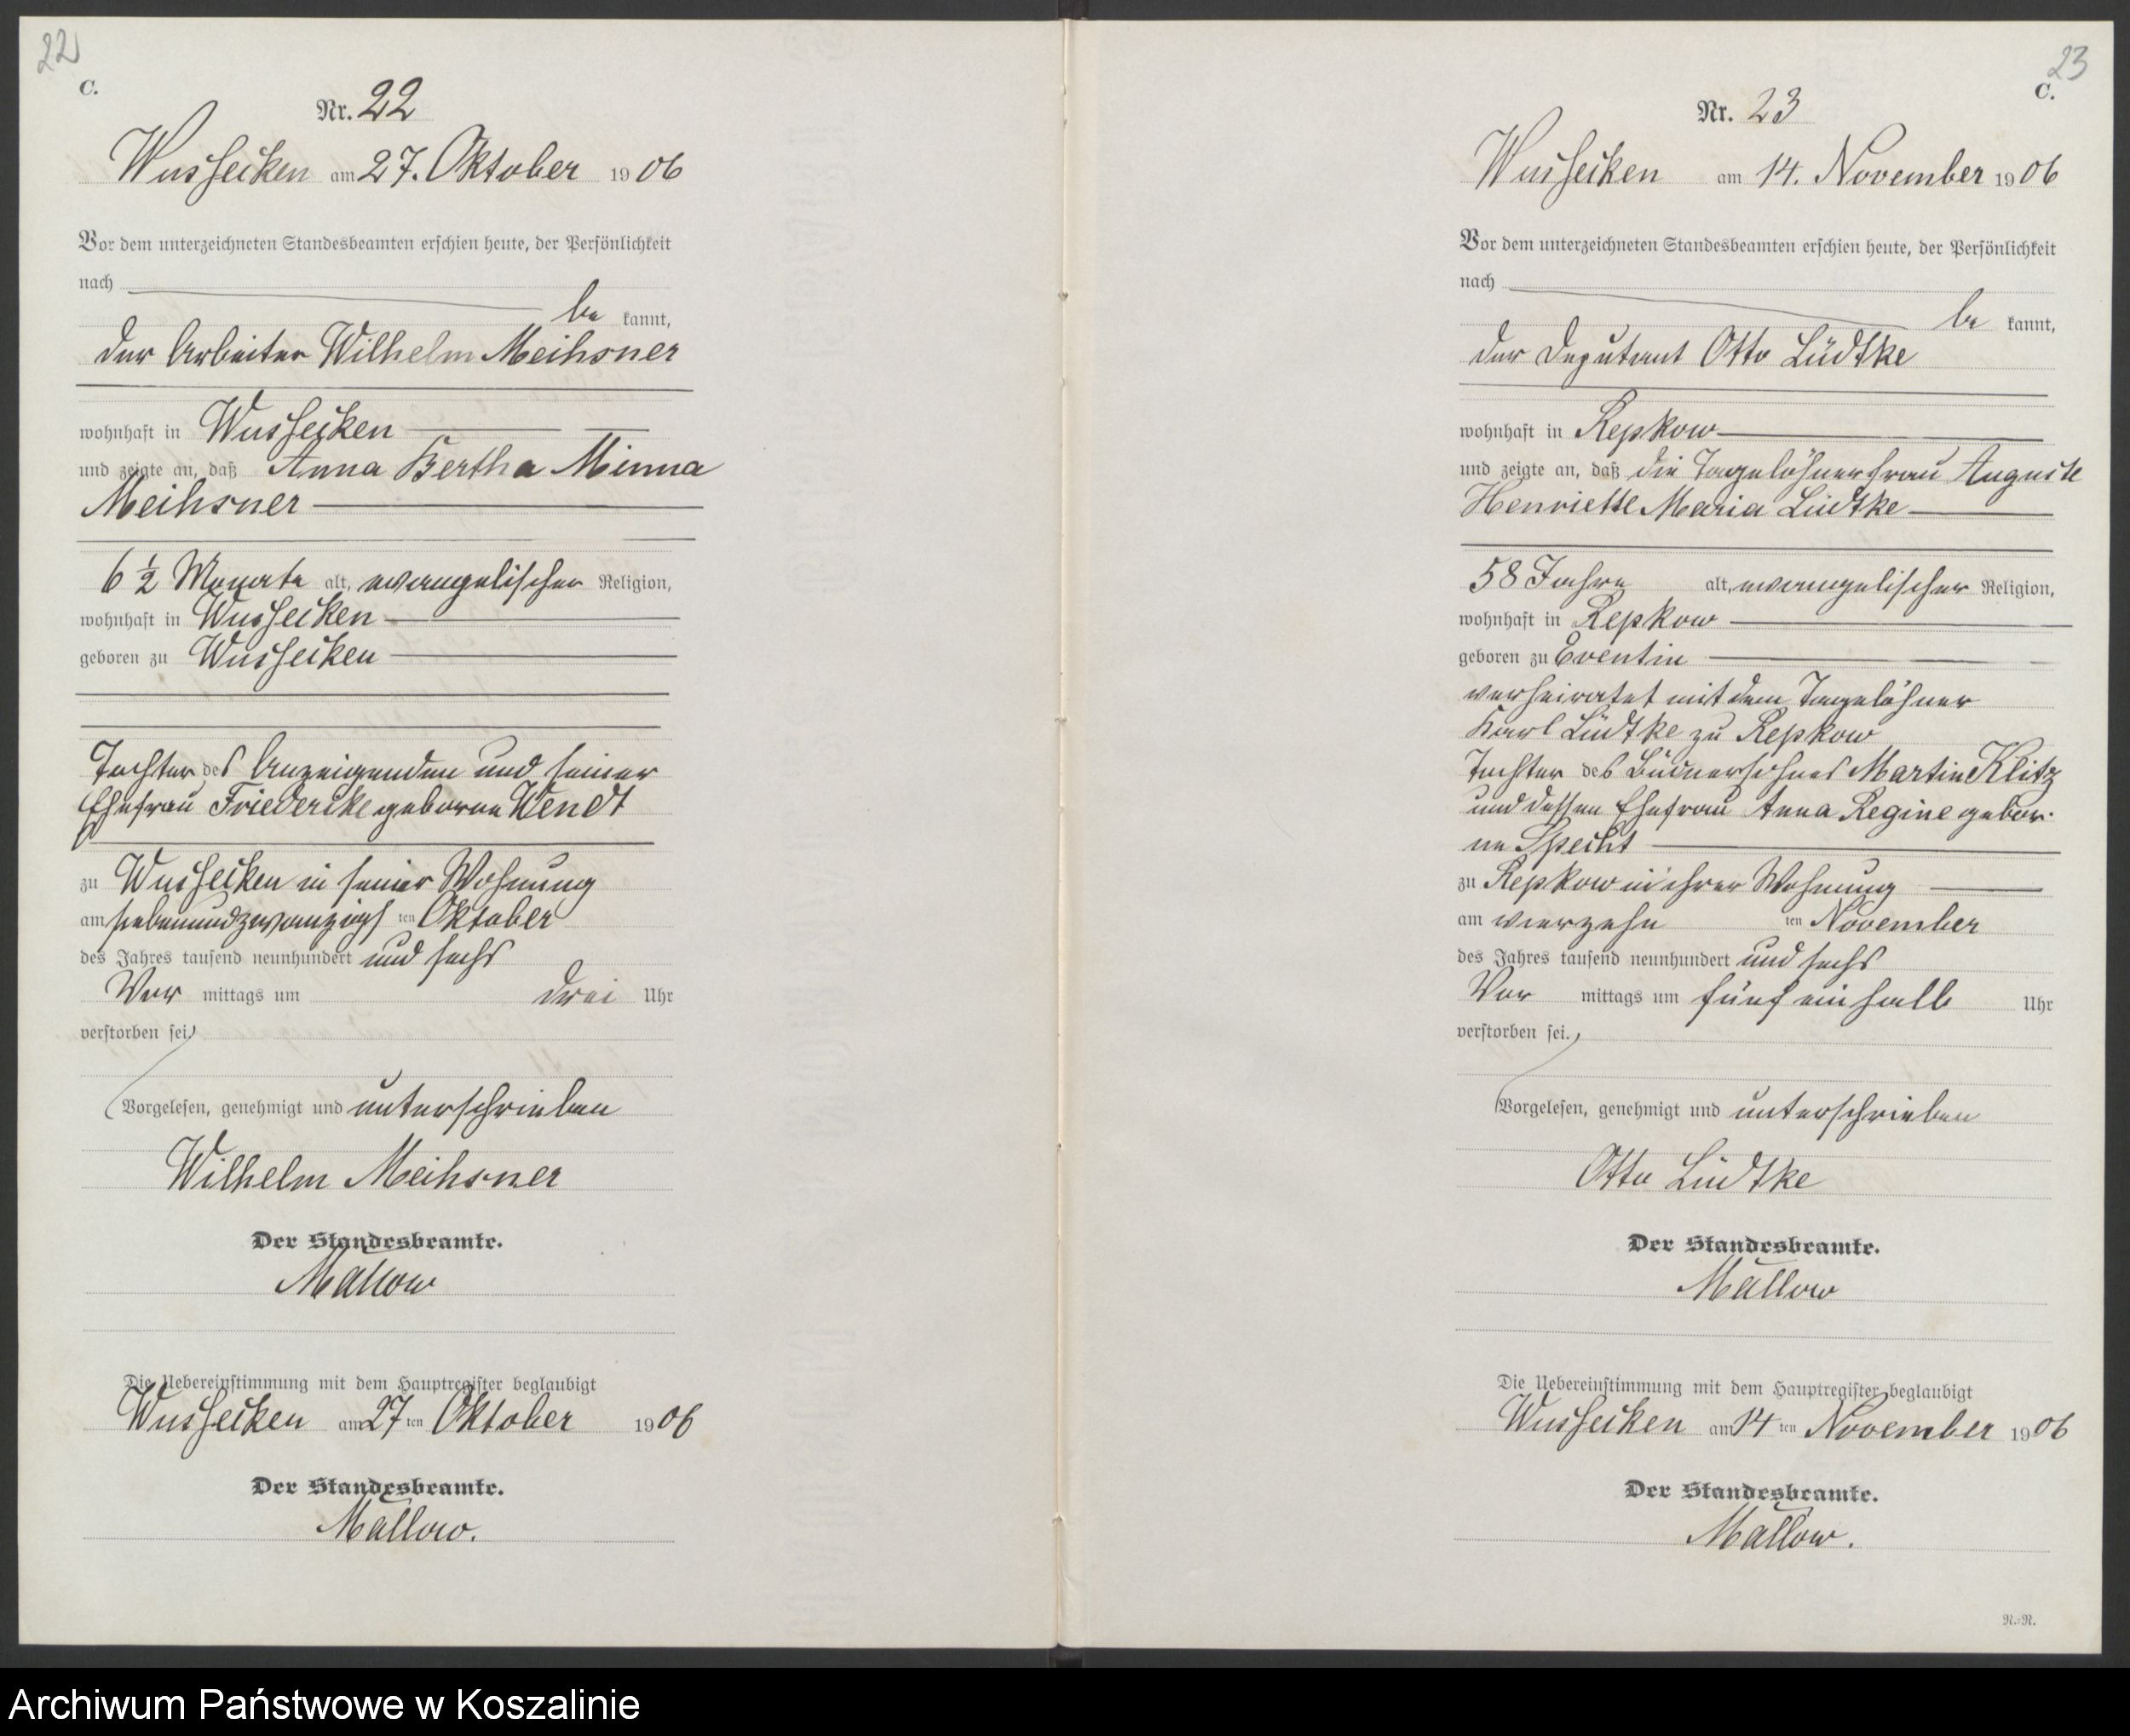 22
C.
Nr. 22
Wussecken am 27. Oktober 1906
Vor dem unterzeichneten Standesbeamten erschien heute, der Persönlichkeit
nach
be kannt,
der Arbeiter Wilhelm Meihsner
wohnhaft in Wussecken
und zeigte an, daß Anna Bertha Minna
Meihsner
6 1/2 Monate alt, evangelischer Religion,
wohnhaft in Wussecken
geboren zu Wussecken
Tochter des Anzeigenden und seiner
Ehefrau Friedericke geborne Wendt
zu Wussecken in seiner Wohnung
am siebenundzwanzigs ten Oktober
des Jahres tausend neunhundert und sechs
Vor mittags um drei Uhr
verstorben sei.
Vorgelesen, genehmigt und unterschrieben
Wilhelm Meihsner
Der Standesbeamte.
Mallow
Die Uebereinstimmung mit dem Hauptregister beglaubigt
Wussecken am 27 ten Oktober 1906
Der Standesbeamte.
Mallow.
23
C.
Nr. 23
Wussecken am 14. November 1906
Vor dem unterzeichneten Standesbeamten erschien heute, der Persönlichkeit
nach
be kannt,
der Deputant Otto Lüdtke
wohnhaft in Repkow
und zeigte an, daß die Tagelöhnerfrau Auguste
Henriette Maria Lüdtke
58 Jahre alt, evangelischer Religion,
wohnhaft in Repkow
geboren zu Eventin
verheiratet mit dem Tagelöhner
Karl Lüdtke zu Repkow
Tochter des Büdnersohnes Martin Klitz
und dessen Ehefrau Anna Regine gebor-
ne Specht
zu Repkow in ihrer Wohnung
am vierzehn ten November
des Jahres tausend neunhundert und sechs
Vor mittags um fünf ein halb Uhr
verstorben sei.
Vorgelesen, genehmigt und unterschrieben
Otto Lüdtke
Der Standesbeamte.
Mallow
Die Uebereinstimmung mit dem Hauptregister beglaubigt
Wussecken am 14 ten November 1906
Der Standesbeamte.
Mallow.
N.-N.
Archiwum Państwowe w Koszalinie